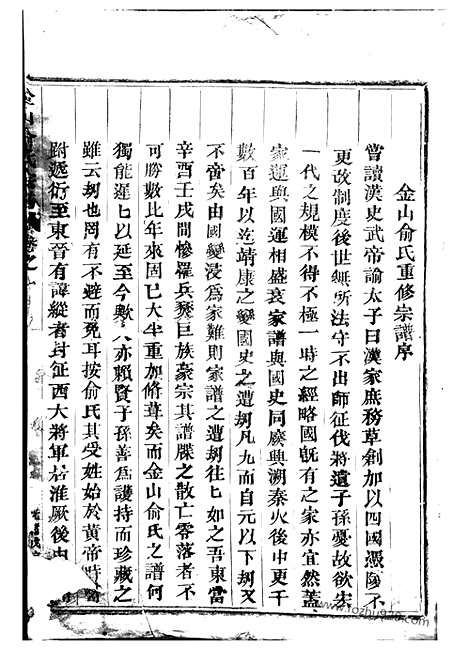 金山俞氏重修宗譜序
嘗讀漢史武帝諭太子曰漢家庶務草創加以四國憑陵不
更改制度後世無所法守不出師征伐將遺子孫憂故欲宏
一代之規模不得不極一時之經略國旣有之家亦宜然蓋
家運與國運相盛衰家譜與國史同廢興溯秦火後中更千
數百年以迄靖康之變國史之遭刼凡九而自元以下刼又
不啻矣由國變浸爲家難則家譜之遭刼往匕如之吾東當
辛酉壬戌間慘罹兵燹巨族豪宗其譜牒之散亡零落者不
可勝數比年來固已大半重加脩葺矣而金山俞氏之譜何
獨能遲匕以延至今歟亦賴賢子孫善爲護持而珍藏之
雖云刼也罔有不避而免耳按俞氏其受姓始於黃帝時
跗遞衍至東晉有諱縱者封征西大將軍居淮厥後由
金山俞氏
卷之
www.rozhu920.com